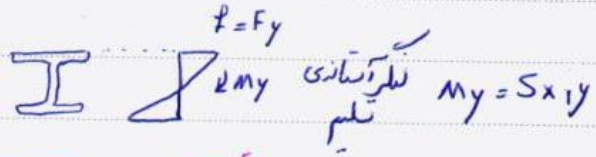 f = Fy
My
لنگر آستانه‌ی تسلیم My = Sx, y